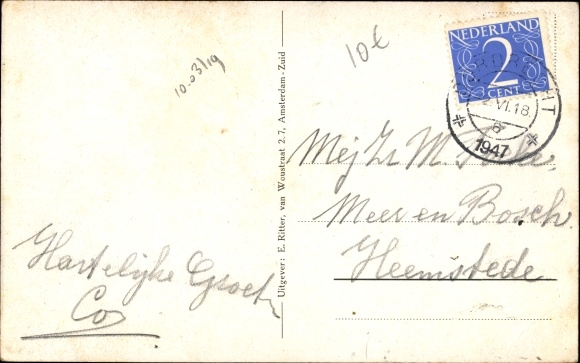 10-03/19
10€
NEDERLAND
2
CENT
VI.18
1947
Uitgever: E. Ritter, van Woustraat 2.7, Amsterdam-Zuid
Mej Zr M.
Meer en Bosch.
Heemstede
Hartelijke Groet
Co